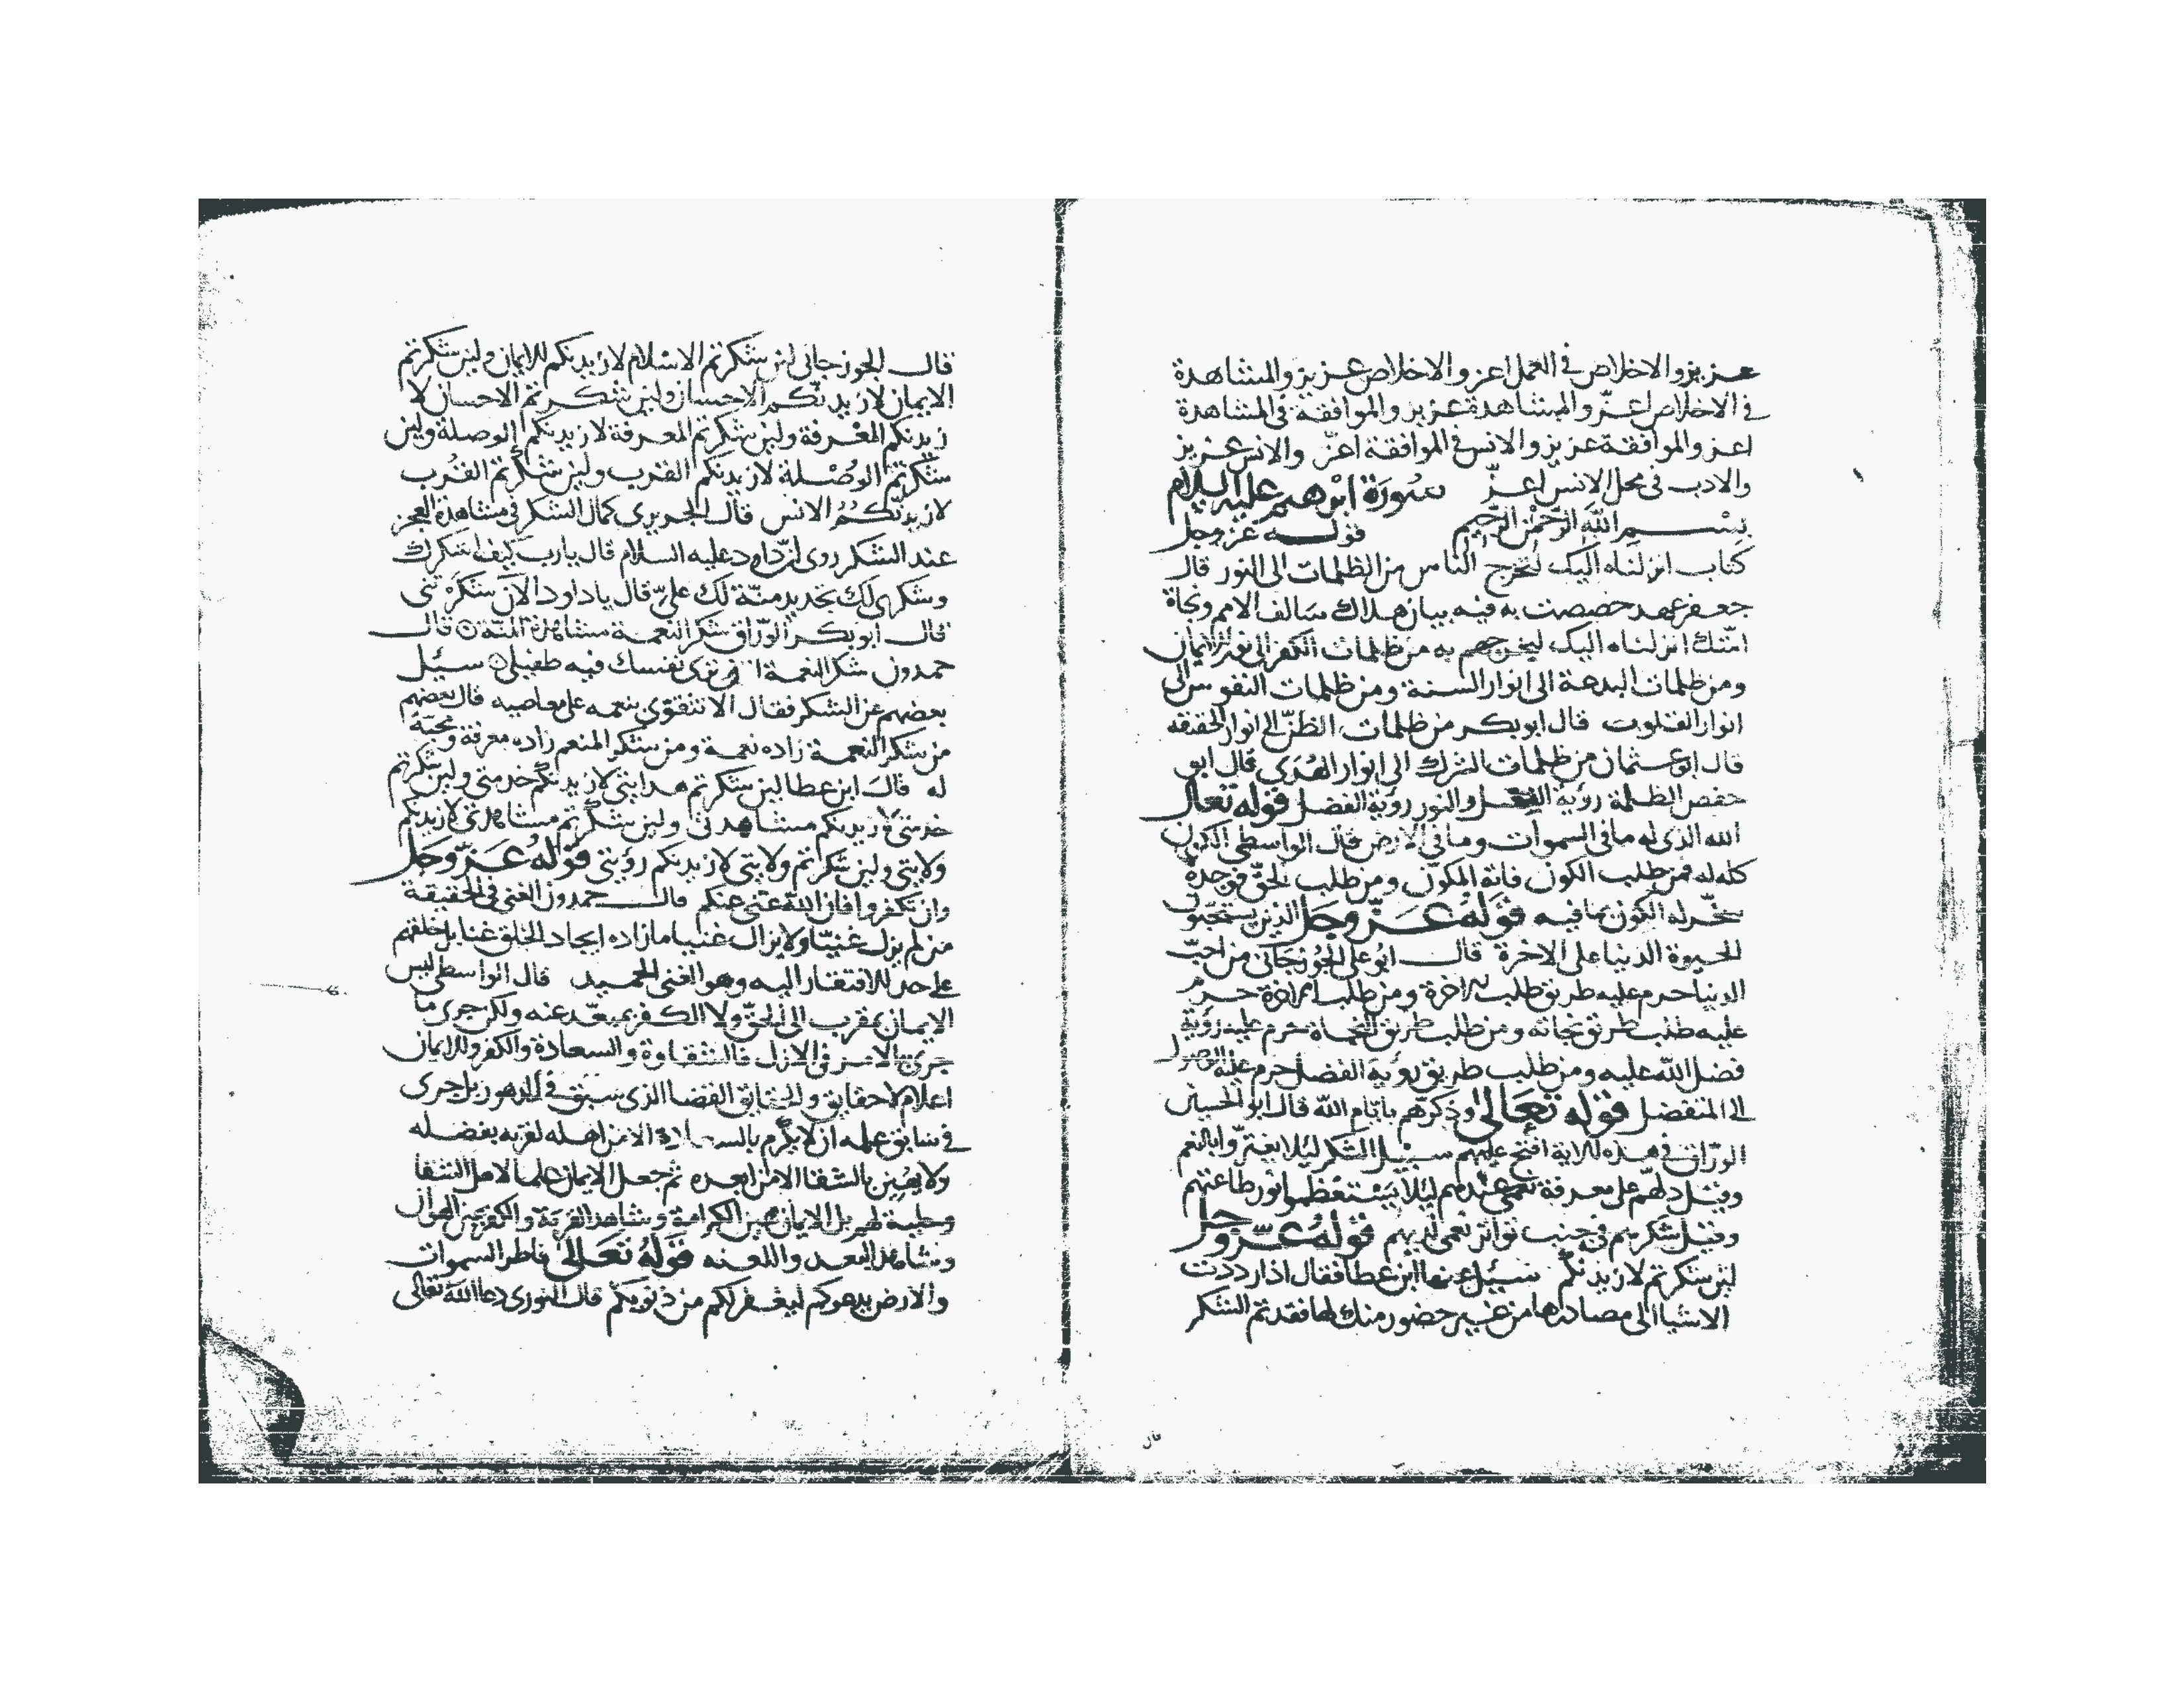 عزيز والاخلاص في العمل اعز والاخلاص عزيز والمشاهدة
في الاخلاص اعزّ والمشاهدة عزيز والموافقة في المشاهدة
اعز والموافقة عزيز والانس في الموافقة اعزّ والانس عزيز
والادب في محل الانس اعزّ سُورَة ابرهيم عليه السلام
بِسْم الله الرّحمٰن الرّحيم قوله عز وجل
كتاب انزلناه اليك لتخرج الناس من الظلمات الى النور قال
جعفر عهد خصصت به فيه بيان هلاك سالف الامم ونجاة
امّتك انزلناه اليك ليخرجهم به من ظلمات الكفر الى نور الايمان
ومن ظلمات البدعة الى انوار السنة ومن ظلمات النفوس الى
انوار القلوب قال ابو بكر من ظلمات الظنّ الى انوار الحقيقه
قال ابو عثمان من ظلمات الشرك الى انوار الهُدَى قال ابو
حفص الظلمة رؤية الفعل والنور رؤية الفضل قوله تعالى
الله الذى له ما في السموات وما في الارض قال الواسطى الكون
كله له فمن طلب الكون فاته المكوّن ومن طلب الحقّ فوجده
سخّر له الكون بما فيه قوله عزّ وجلّ الذين يستحبون
الحيوة الدنيا على الاخرة قال ابو على الجوزجانى من احبّ
الدنيا حرم عليه طريق طلب الاخرة ومن طلب الاخرة حرم
عليه طلب طريق نجاته ومن طلب طريق النجاة حرم عليه رؤية
فضل الله عليه ومن طلب طريق رؤية الفضل حرم عليه الوصول
الى المتفضل قوله تعالى وذكرّهم بايّام الله قال ابو الحسين
الورّاق في هذه الاية افتح عليهم سبيل الشكر ليلا يغترّوا بالنعم
وقيل دلهّم على معرفة نعمى عندهم ليلا يستعظموا نور طاعتهم
وقيل شكرهم في جنب تواتر نعمى لديهم قوله عزّ وجل
لين شكرتم لازيدنكم سيُل عنها ابن عطا فقال اذا رددت
الاشيا الى مصادرها من غير حضور منك لها فقد تمّ الشكر
قال
قال الجوزجانى لين شكرتم الاسلام لازيدنكم الايمان ولين شكرتم
الايمان لازيدنّكم الاحسان ولين شكرتم الاحسان لا
زيدنكم المعرفة ولين شكرتم المعرفة لازيدنكم الوصلة ولين
شكرتم الوُصْلة لازيدنكم القرب ولين شكرتم القُرب
لازيدنّكمُ الانس قال الجريرى كمال الشكر في مشاهدة العجز
عند الشكر روى ان داود عليه السلام قال يارب كيف اشكرك
وشكرى لك تجديد منّة لك علىّ قال ياداود الان شكرتنى
قال ابو بكر الورّاق شكر النعمة مشاهدة المنّة قال
حمدون شكر النعمة ان ترى نفسك فيه طفيلى سيُل
بعضهم عن الشكر فقال الا تتقوى بنعمه على معاصيه قال بعضهم
من شكر النعمة زاده نعمة ومن شكر المنعم زاده معرفة ومحبّة
له قال ابن عطا لين شكرتم هدايتى لازيدنكم خدمتى ولين شكرتم
خدمتى لازيدنكم مشاهدتى ولين شكرتم مشاهدتى لازيدنكم
ولايتى ولين شكرتم ولايتى لازيدنكم رؤيتى قوله عزّ وجل
وان تكفروا فان الله غنى عنكم قال حمدون الغنى في الحقيقة
من لم يزل غنيّا ولا يزال غنيا ما زاده ايجاد الخلق غنا بل خلقهم
على حد الافتقار اليه وهو الغنى الحميد قال الواسطى ليس
الايمان بمقرب الى الحقّ ولا الكفر بمبعّد عنه ولكن جرى ما
جرى به الامر في الازل فالشقاوة والسعادة والكفر والايمان
اعلام لا حقايق والحقايق القضا الذى سبق في الدهور بل جرى
في سابق علمه ان لا يكرم بالسعادة الا من اهله لقربه بفضله
ولا يهين بالشقا الا من ابعده ثم جعل الايمان علما لاهل الشقا
وحلية الايمان الكرامة وشاهد القربة والكفر الهوان
وشاهد البعد واللعنه قوله تعالى فاطر السموات
والارض يدعوكم ليغفر لكم من ذنوبكم قال النورى دعا الله تعالى